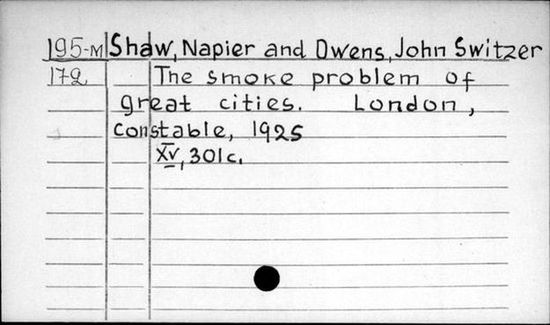 195-M Shaw, Napier and Owens, John Switzer
172 The smoke problem of
great cities. London,
Constable, 1925
XV, 301c.